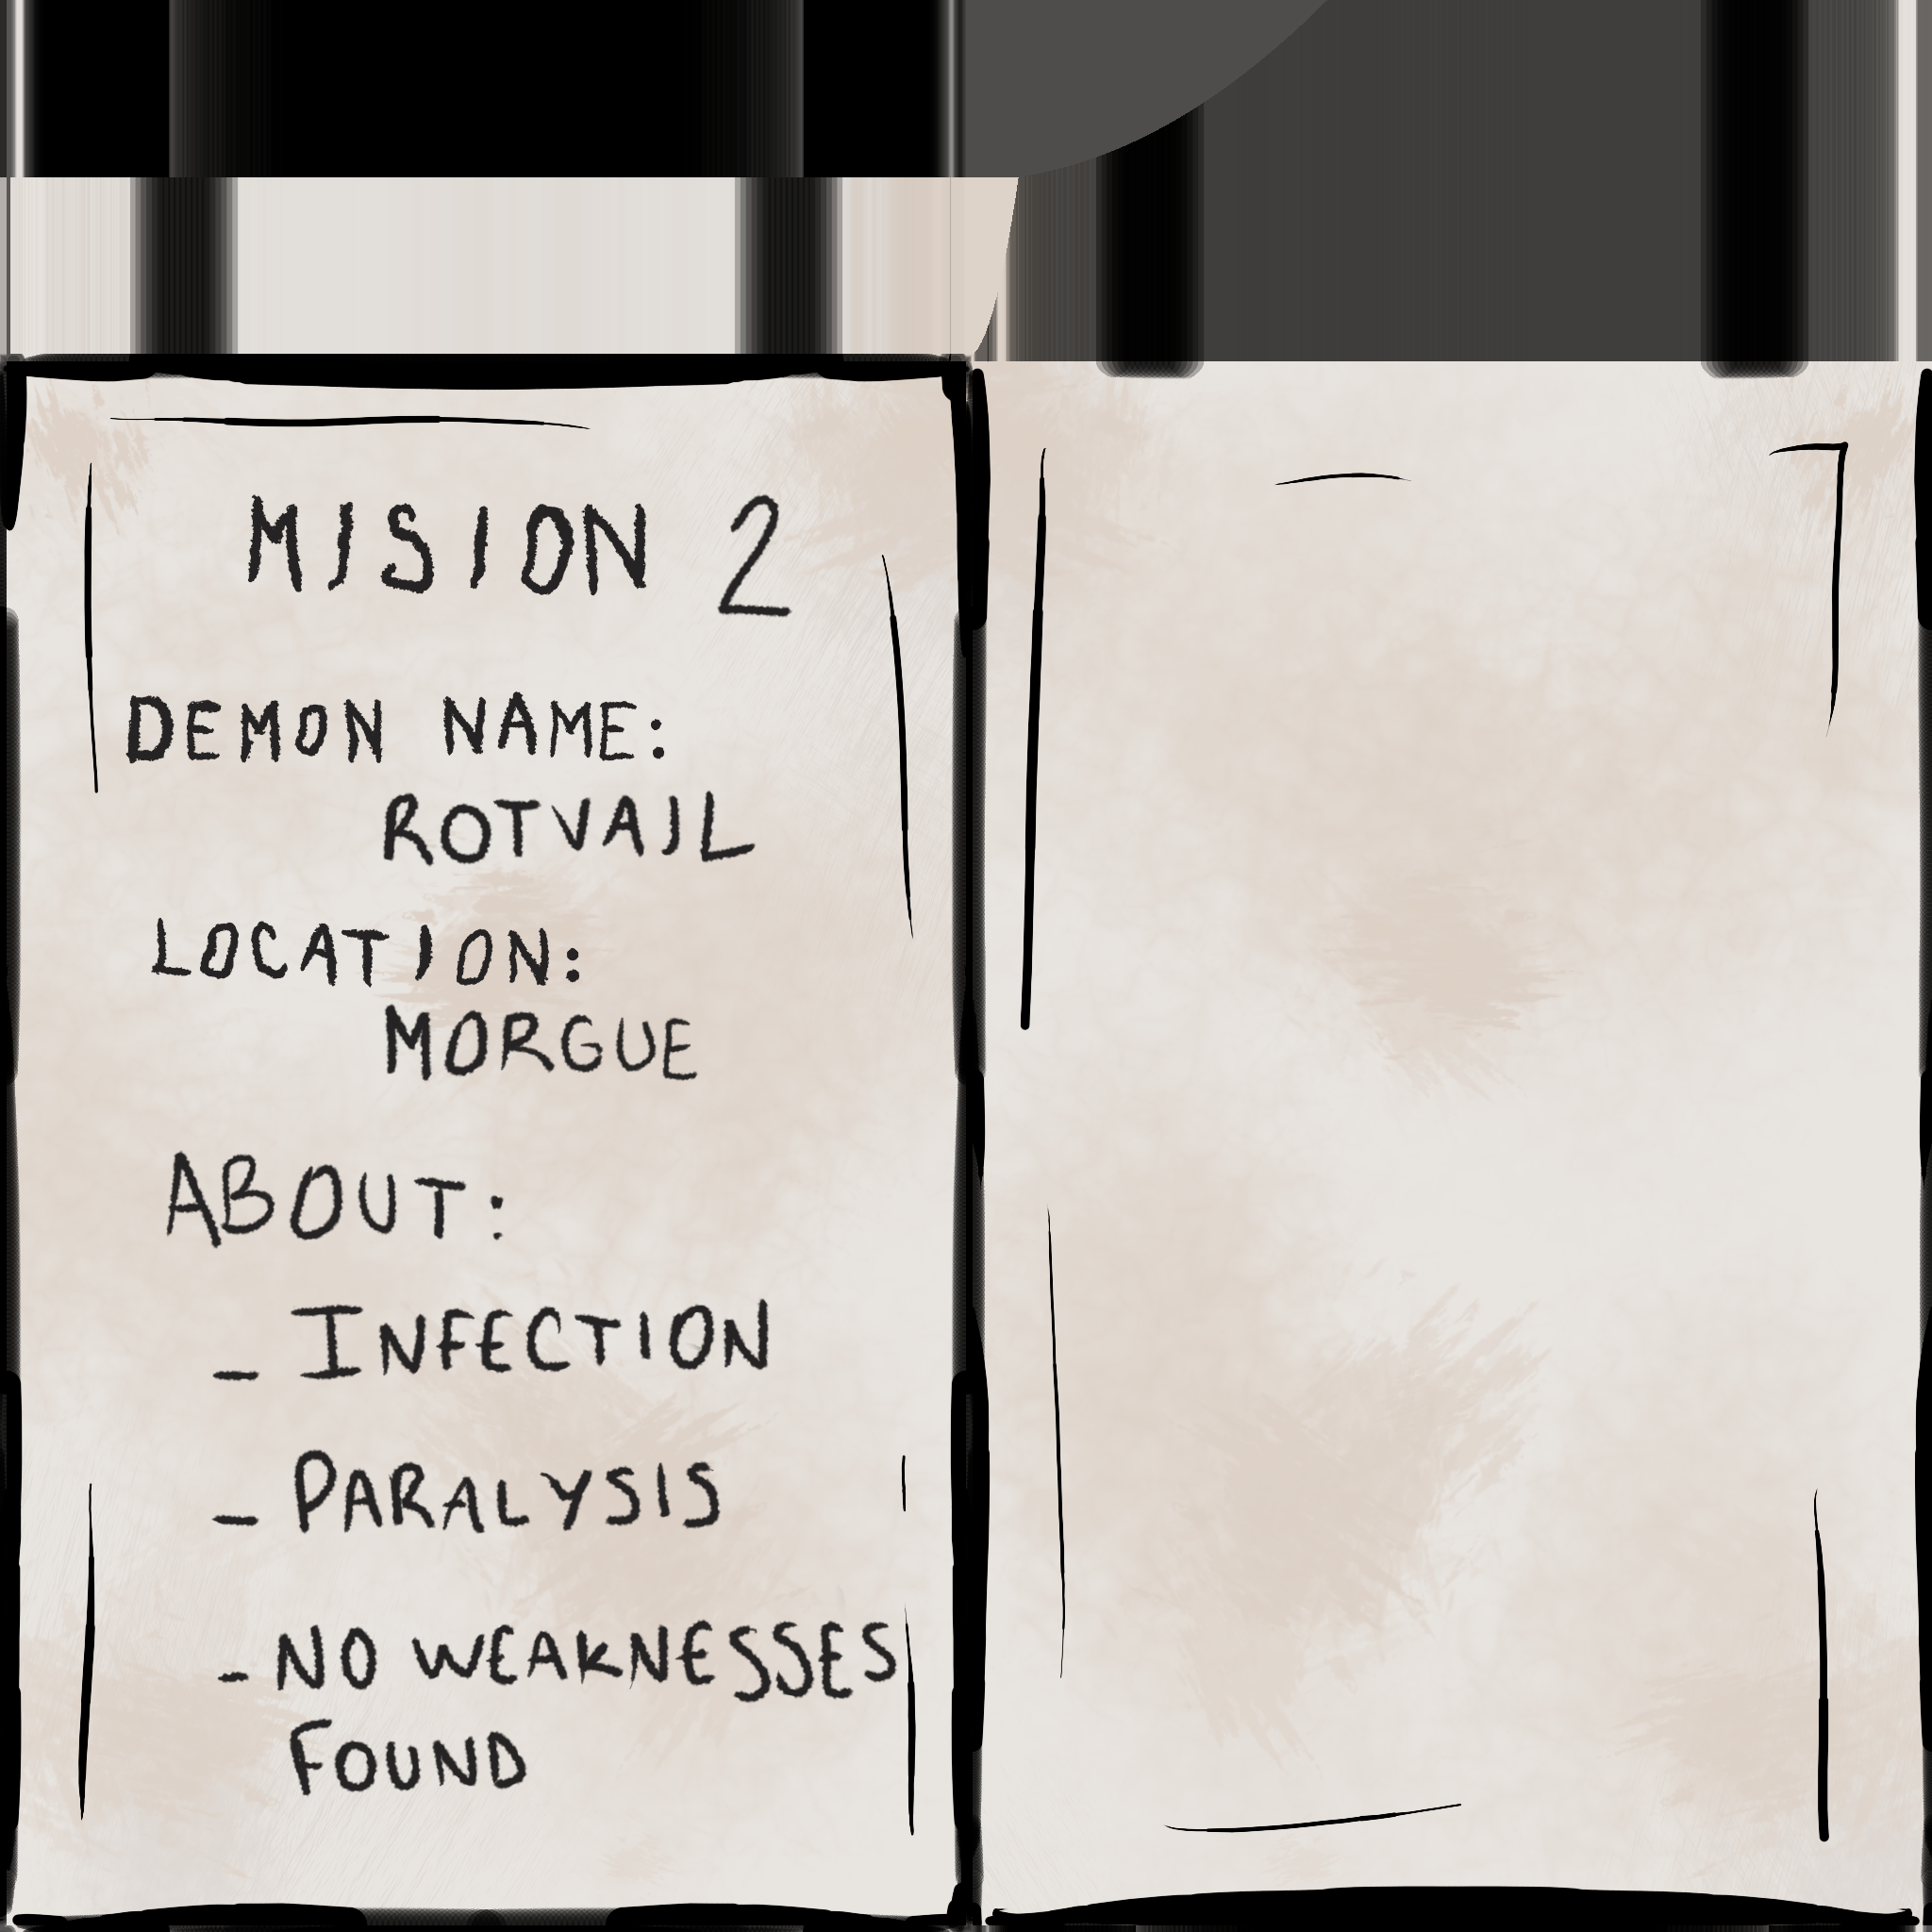 MISION 2
DEMON NAME:
ROTVAIL
LOCATION:
MORGUE
ABOUT:
- INFECTION
- PARALYSIS
- NO WEAKNESSES
FOUND